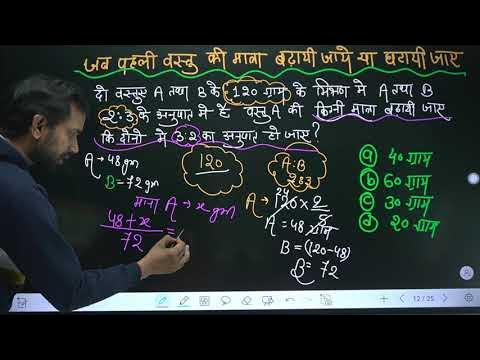 जब पहली वस्तु की मात्रा बढ़ायी जाये या घटायी जाए
दो वस्तुए A तथा B के 120 ग्राम के मिश्रण मे A तथा B
2:3 के अनुपात मे है वस्तु A की कितनी मात्रा बढायी जाए
कि दोनो मे 3:2 का अनुपात हो जाए?
A → 48 gm
B = 72 gm
माना A → x gm
48+x
72
=
120
A:B
2:3
24
A → 120 × 2
5
A = 48 ग्राम
B = (120-48)
B = 72
a 40 ग्राम
b 60 ग्राम
c 30 ग्राम
d 20 ग्राम
12 / 25